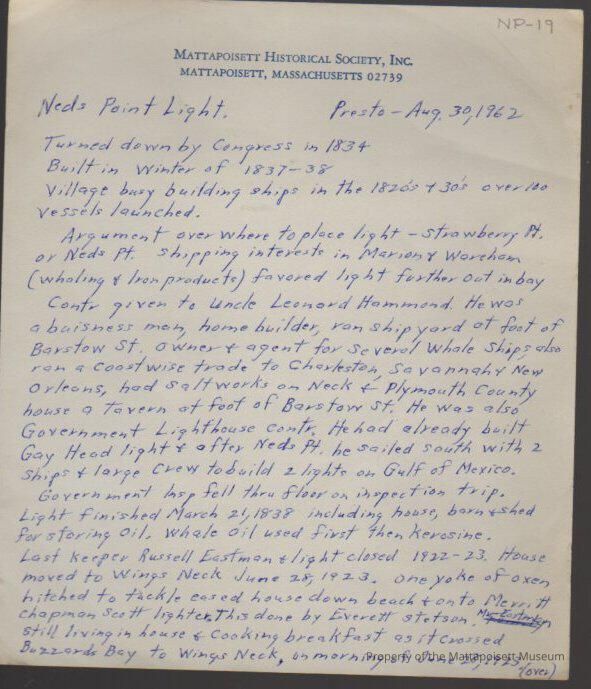 NP-19
MATTAPOISETT HISTORICAL SOCIETY, INC.
MATTAPOISETT, MASSACHUSETTS 02739
Neds Point Light. Presto - Aug. 30, 1962
Turned down by Congress in 1834
Built in Winter of 1837-38
Village busy building ships in the 1820's & 30's over 100
vessels launched.
Argument over where to place light - Strawberry Pt.
or Neds Pt. Shipping interests in Marion & Wareham
(whaling & Iron products) favored light further out in bay
Contr given to Uncle Leonard Hammond. He was
a buisness man, home builder, ran shipyard at foot of
Barstow St. owner & agent for Several Whale Ships, also
ran a Coastwise trade to Charleston, Savannah & New
Orleans, had Saltworks on Neck & Plymouth County
house a Tavern at foot of Barstow St. He was also
Government Lighthouse contr. He had already built
Gay Head light & after Neds Pt. he sailed south with 2
Ships & large Crew to build 2 lights on Gulf of Mexico.
Government Insp fell thru floor on inspection trip.
Light finished March 21, 1838 including house, barn & shed
for storing Oil. Whale Oil used first then Kerosine.
Last Keeper Russell Eastman & light closed 1922-23. House
moved to Wings Neck June 28, 1923. One yoke of oxen
hitched to tackle eased house down beach & onto Merritt
Chapman Scott lighter. This done by Everett Stetson. Mr. Eastman
still living in house & Cooking breakfast as it crossed
Buzzards Bay to Wings Neck, on morning 1923
(over)
Property of the Mattapoisett Museum